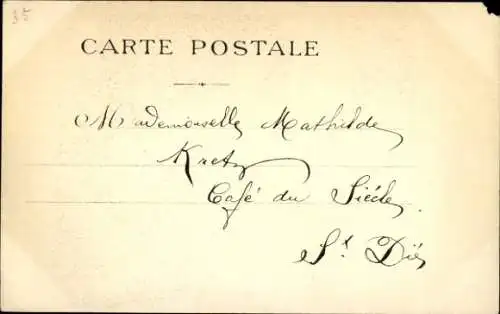 35
CARTE POSTALE
Mademoiselle Mathilde
Kretz
Café du Siècle
St. Dié